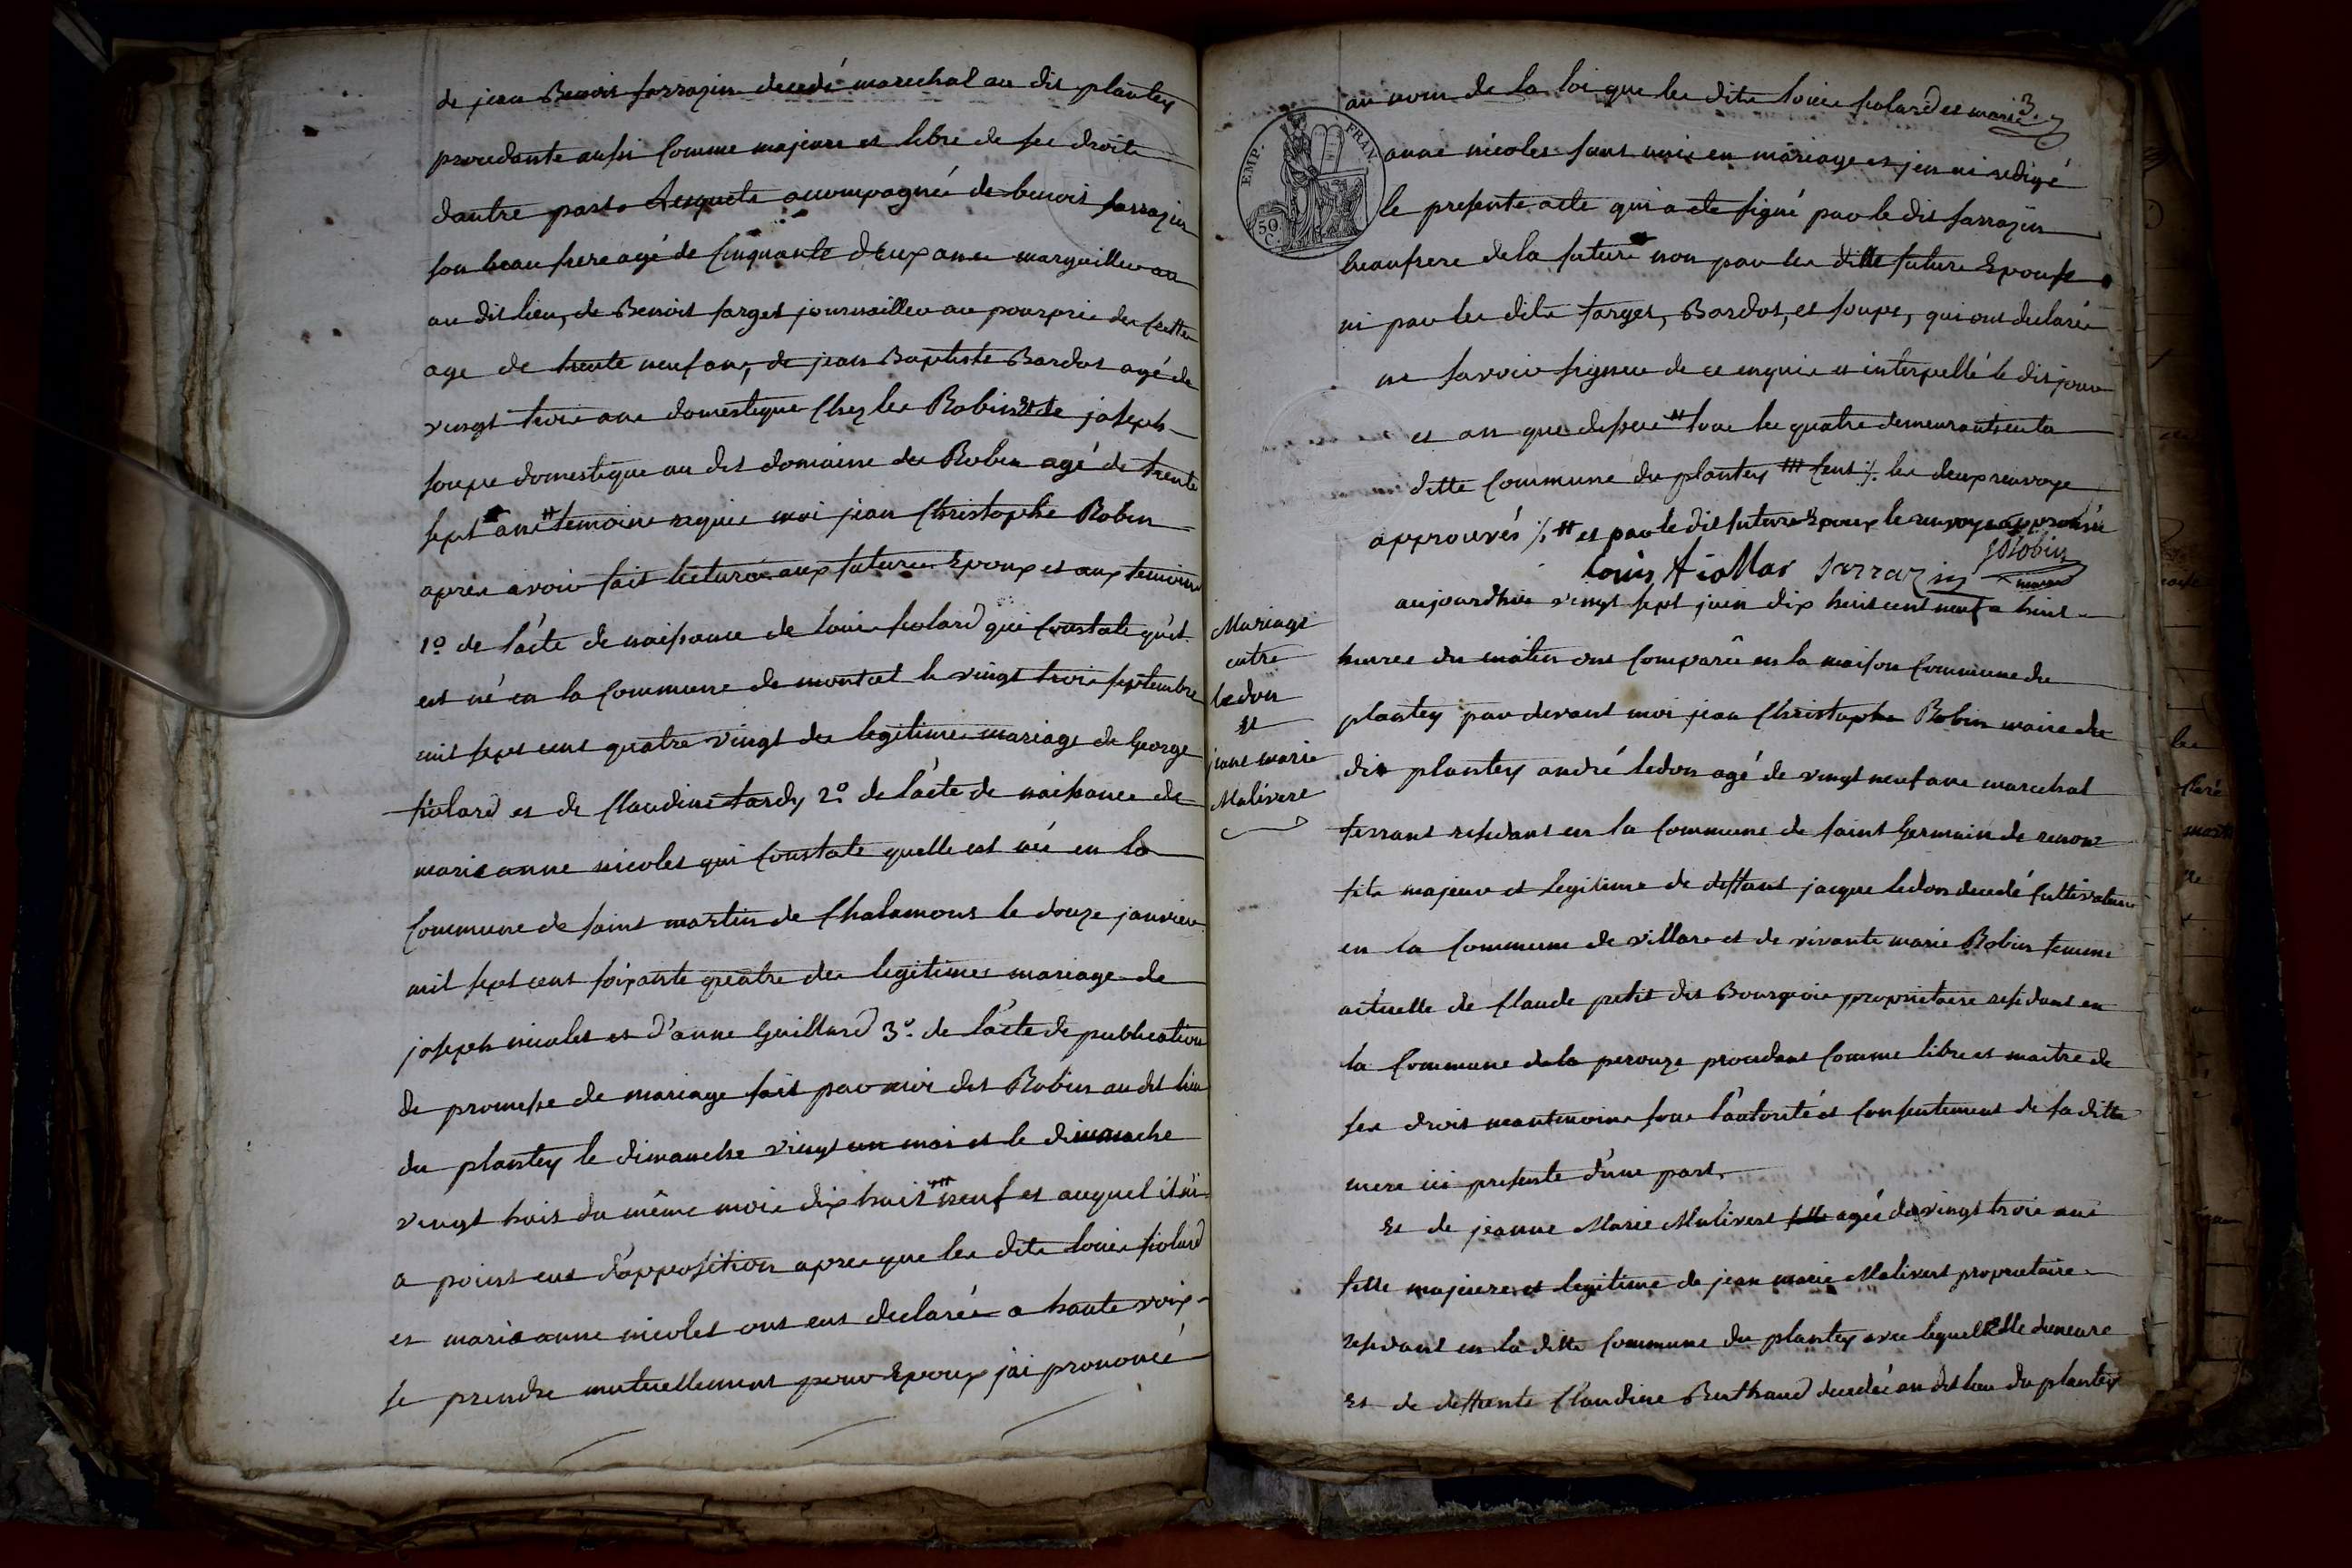 de jean Benois sarrazin decedé marechal au dit plantey
procedante aussi Comme majeure et libre de ses droits
dautre parts lesquels accompagnés de benois sarrazin
son beau frere agé de Cinquante deux ans marguillier au
au dit lieu, de Benois farges journaillier au pourprix des
age de trente neuf ans, de jean Baptiste Bardot agé de
vingt trois ans domestique Chez les Robins Et de joseph
soupe domestique au dit domaine des Robin agé de trente
sept ans # temoins requis moi jean Christophe Robin
apres avoir fait lecture aux futures Epoux et aux temoins
1o de l'acte de naissance de louis fiolard qui Constate qu'il
est né en la Commune de montcet le vingt trois septembre
mil sept cens quatre vingt du legitime mariage de George
fiolard et de Claudine tardy 2o de l'acte de naissance de
marie anne nicoles qui Constate quelle est née en la
Commune de saint martin de Chalamons le douze janvier
mil sept cens soixante quatre du legitimes mariage de
joseph nicoles et d'anne Guillard 3o de l'acte de publication
de promesse de mariage fait par moi dit Robin au dit lieu
du plantey le dimanche vingt un mai et le dimanche
vingt huis du même mois dix huit ### neuf et auquel il ni
a point eus d'opposition apres que les dits louis fiolard
et marie anne nicoles ons eus declarés a haute voix
se prendre mutuellement pour Epoux jai prononcé
3
au nom de la loi que les dits louis fiolard et marie
EMP. FRAN.
50 C.
anne nicoles sont unis en mariage et jen ai redigé
le presente acte qui a ete signé par le dit sarrazin
beaufrere de la future non par les ditte future Epouse
ni par les dits farges, Bardot, et soupe, qui ons declarés
ne savoir signer de ce enquis et interpellé le dit jour
et an que dessus # tous les quatre demeurants en la
ditte Commune du plantey ### Cens ./. les deux renvoye
approuvés ./. # et par le dit future Epoux le renvoye approuvée
louis fiollar sarrazin JC Robin
maire
Mariage
entre
ledon
et
jeane marie
Malivere
aujourdhuis vingt sept juin dix huit cens neuf a huis
heures du matin ons Comparû en la maison Commune du
plantey par devant moi jean Christophe Robin maire du
dit plantey andré ledon agé de vingt neuf ans marechal
ferrant residant en la Commune de saint Germain de renon
fils majeur et legitime de deffunt jacque ledon decedé Cultivateur
en la Commune de villars et de vivante marie Robin femme
actuelle de Claude petit dit Bourgeois proprietaire residant en
la Commune de la perouze procedant Comme libre et maitre de
ses drois neantmoins sous l'autorité et Consentement de sa ditte
mere ici presente d'une part.
Et de jeanne Marie Malivert agée de vingt trois ans
fille majeure et legitime de jean marie Malivert proprietaire
residant en la ditte Commune du plantey avec lequelle Elle demeure
Et de deffunte Claudine Berthaud decedée au dit lieu du plantey